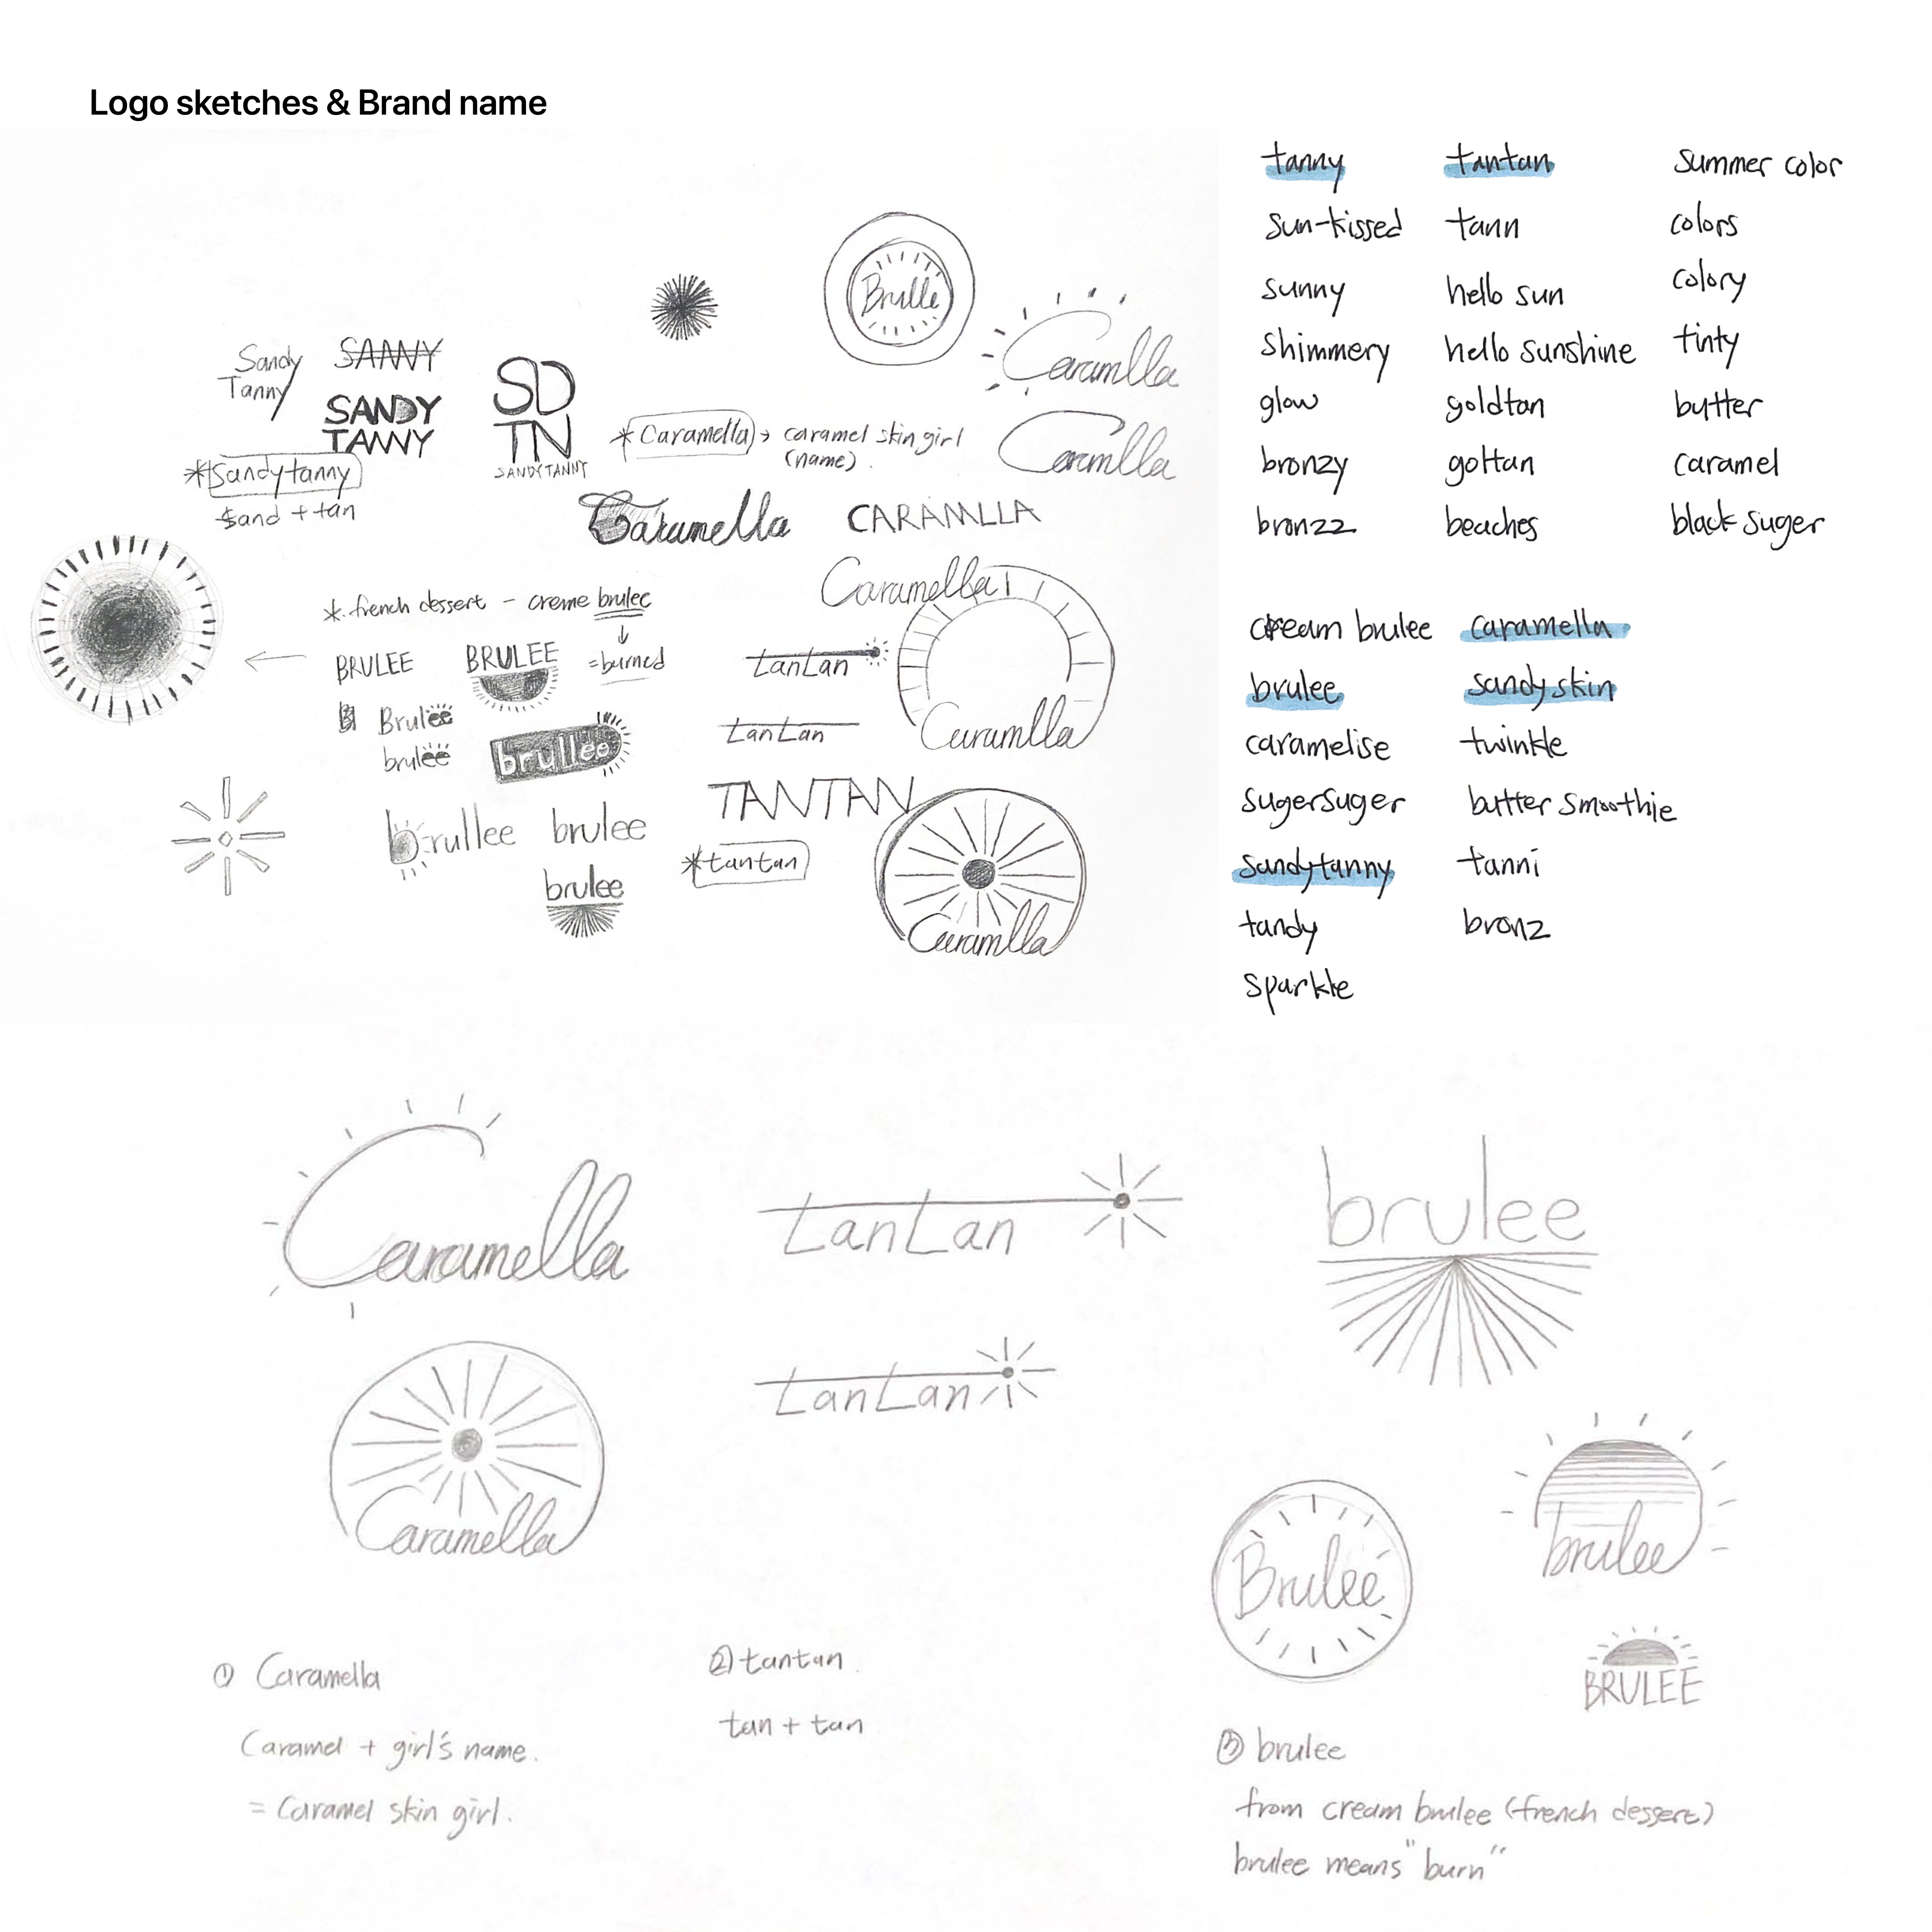 Logo sketches & Brand name
Sandy
Tanny
SANNY
SANDY
TANNY
*Sandytanny
Sand + tan
SD
TN
SANDYTANNY
Brulle
Caramlla
*Caramella → caramel skin girl
(name).
Caramlla
Caramella
CARAMLLA
*. french dessert - creme brulee
↓
=burned
BRULEE
BRULEE
Brulee
brulee
brullee
brullee
brulee
brulee
Caramella
tantan
tantan
Caramlla
TANTAN
*tantan
Caramlla
tanny
sun-kissed
sunny
shimmery
glow
bronzy
bronzz
tantan
tann
hello sun
hello sunshine
goldtan
goltan
beaches
summer color
colors
colory
tinty
butter
caramel
black suger
cream brulee
brulee
caramelise
sugersuger
sandytanny
tandy
sparkle
caramella
sandy skin
twinkle
butter smoothie
tanni
bronz
Caramella
tantan
brulee
Caramella
tantan
Brulee
brulee
BRULEE
① Caramella
Caramel + girl's name.
= Caramel skin girl.
② tantan.
tan + tan
③ brulee
from cream brulee (french dessert)
brulee means "burn"